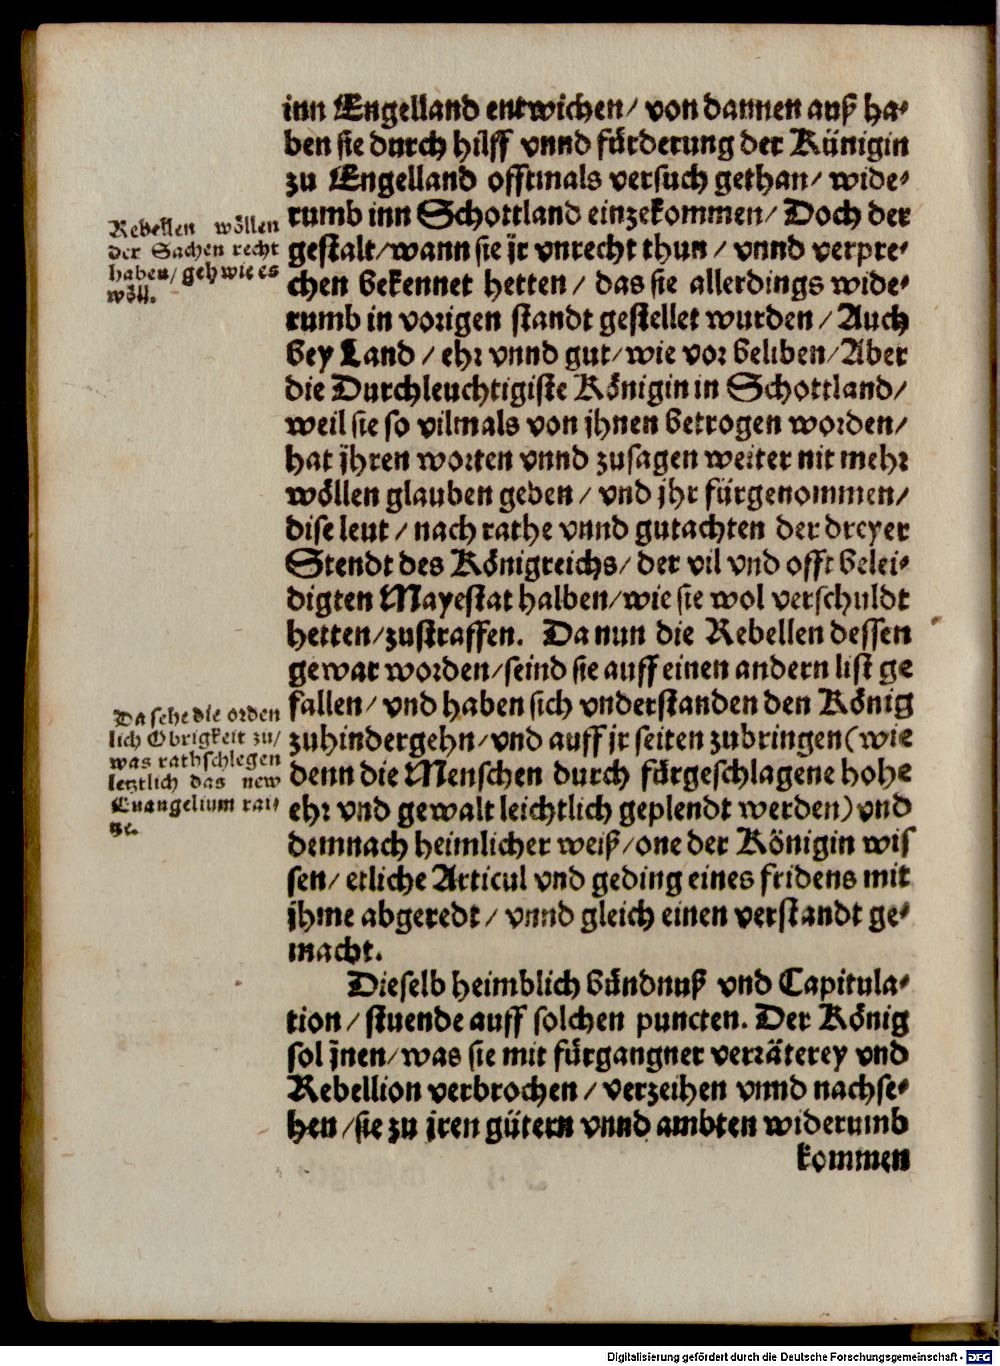 inn Engelland entwichen/ von dannen auß ha-
ben sie durch hilff vnnd fürderung der Künigin
zu Engelland offtmals versuch gethan/ wide-
rumb inn Schottland einzekommen/ Doch der
gestalt/wann sie jr vnrecht thun / vnnd verpre-
chen bekennet hetten / das sie allerdings wide-
rumb in vorigen standt gestellet wurden / Auch
bey Land / ehr vnnd gut/wie vor beliben/Aber
die Durchleuchtigiste Königin in Schottland/
weil sie so vilmals von jhnen betrogen worden/
hat jhren worten vnnd zusagen weiter nit mehr
wöllen glauben geben / vnd jhr fürgenommen/
dise leut / nach rathe vnnd gutachten der dreyer
Stendt des Königreichs/ der vil vnd offt belei-
digten Mayestat halben/wie sie wol verschuldt
hetten/zustraffen. Da nun die Rebellen dessen
gewar worden/seind sie auff einen andern list ge
fallen/ vnd haben sich vnderstanden den König
zuhindergehn/vnd auff jr seiten zubringen(wie
denn die Menschen durch fürgeschlagene hohe
ehr vnd gewalt leichtlich geplendt werden) vnd
demnach heimlicher weiß/one der Königin wis
sen/ etliche Articul vnd geding eines fridens mit
jhme abgeredt / vnnd gleich einen verstandt ge-
macht.
Dieselb heimblich bündnuß vnd Capitula-
tion / stuende auff solchen puncten. Der König
sol jnen/was sie mit fürgangner verräterey vnd
Rebellion verbrochen / verzeihen vnnd nachse-
hen /sie zu jren gütern vnnd ambten widerumb
kommen
Rebellen wöllen
der Sachen recht
haben/ geh wie es
wöll.
Da sehe die orden
lich Obrigkeit zu/
was rathschlegen
letztlich das new
Euangelium rai-
ge.
Digitalisierung gefördert durch die Deutsche Forschungsgemeinschaft - DFG